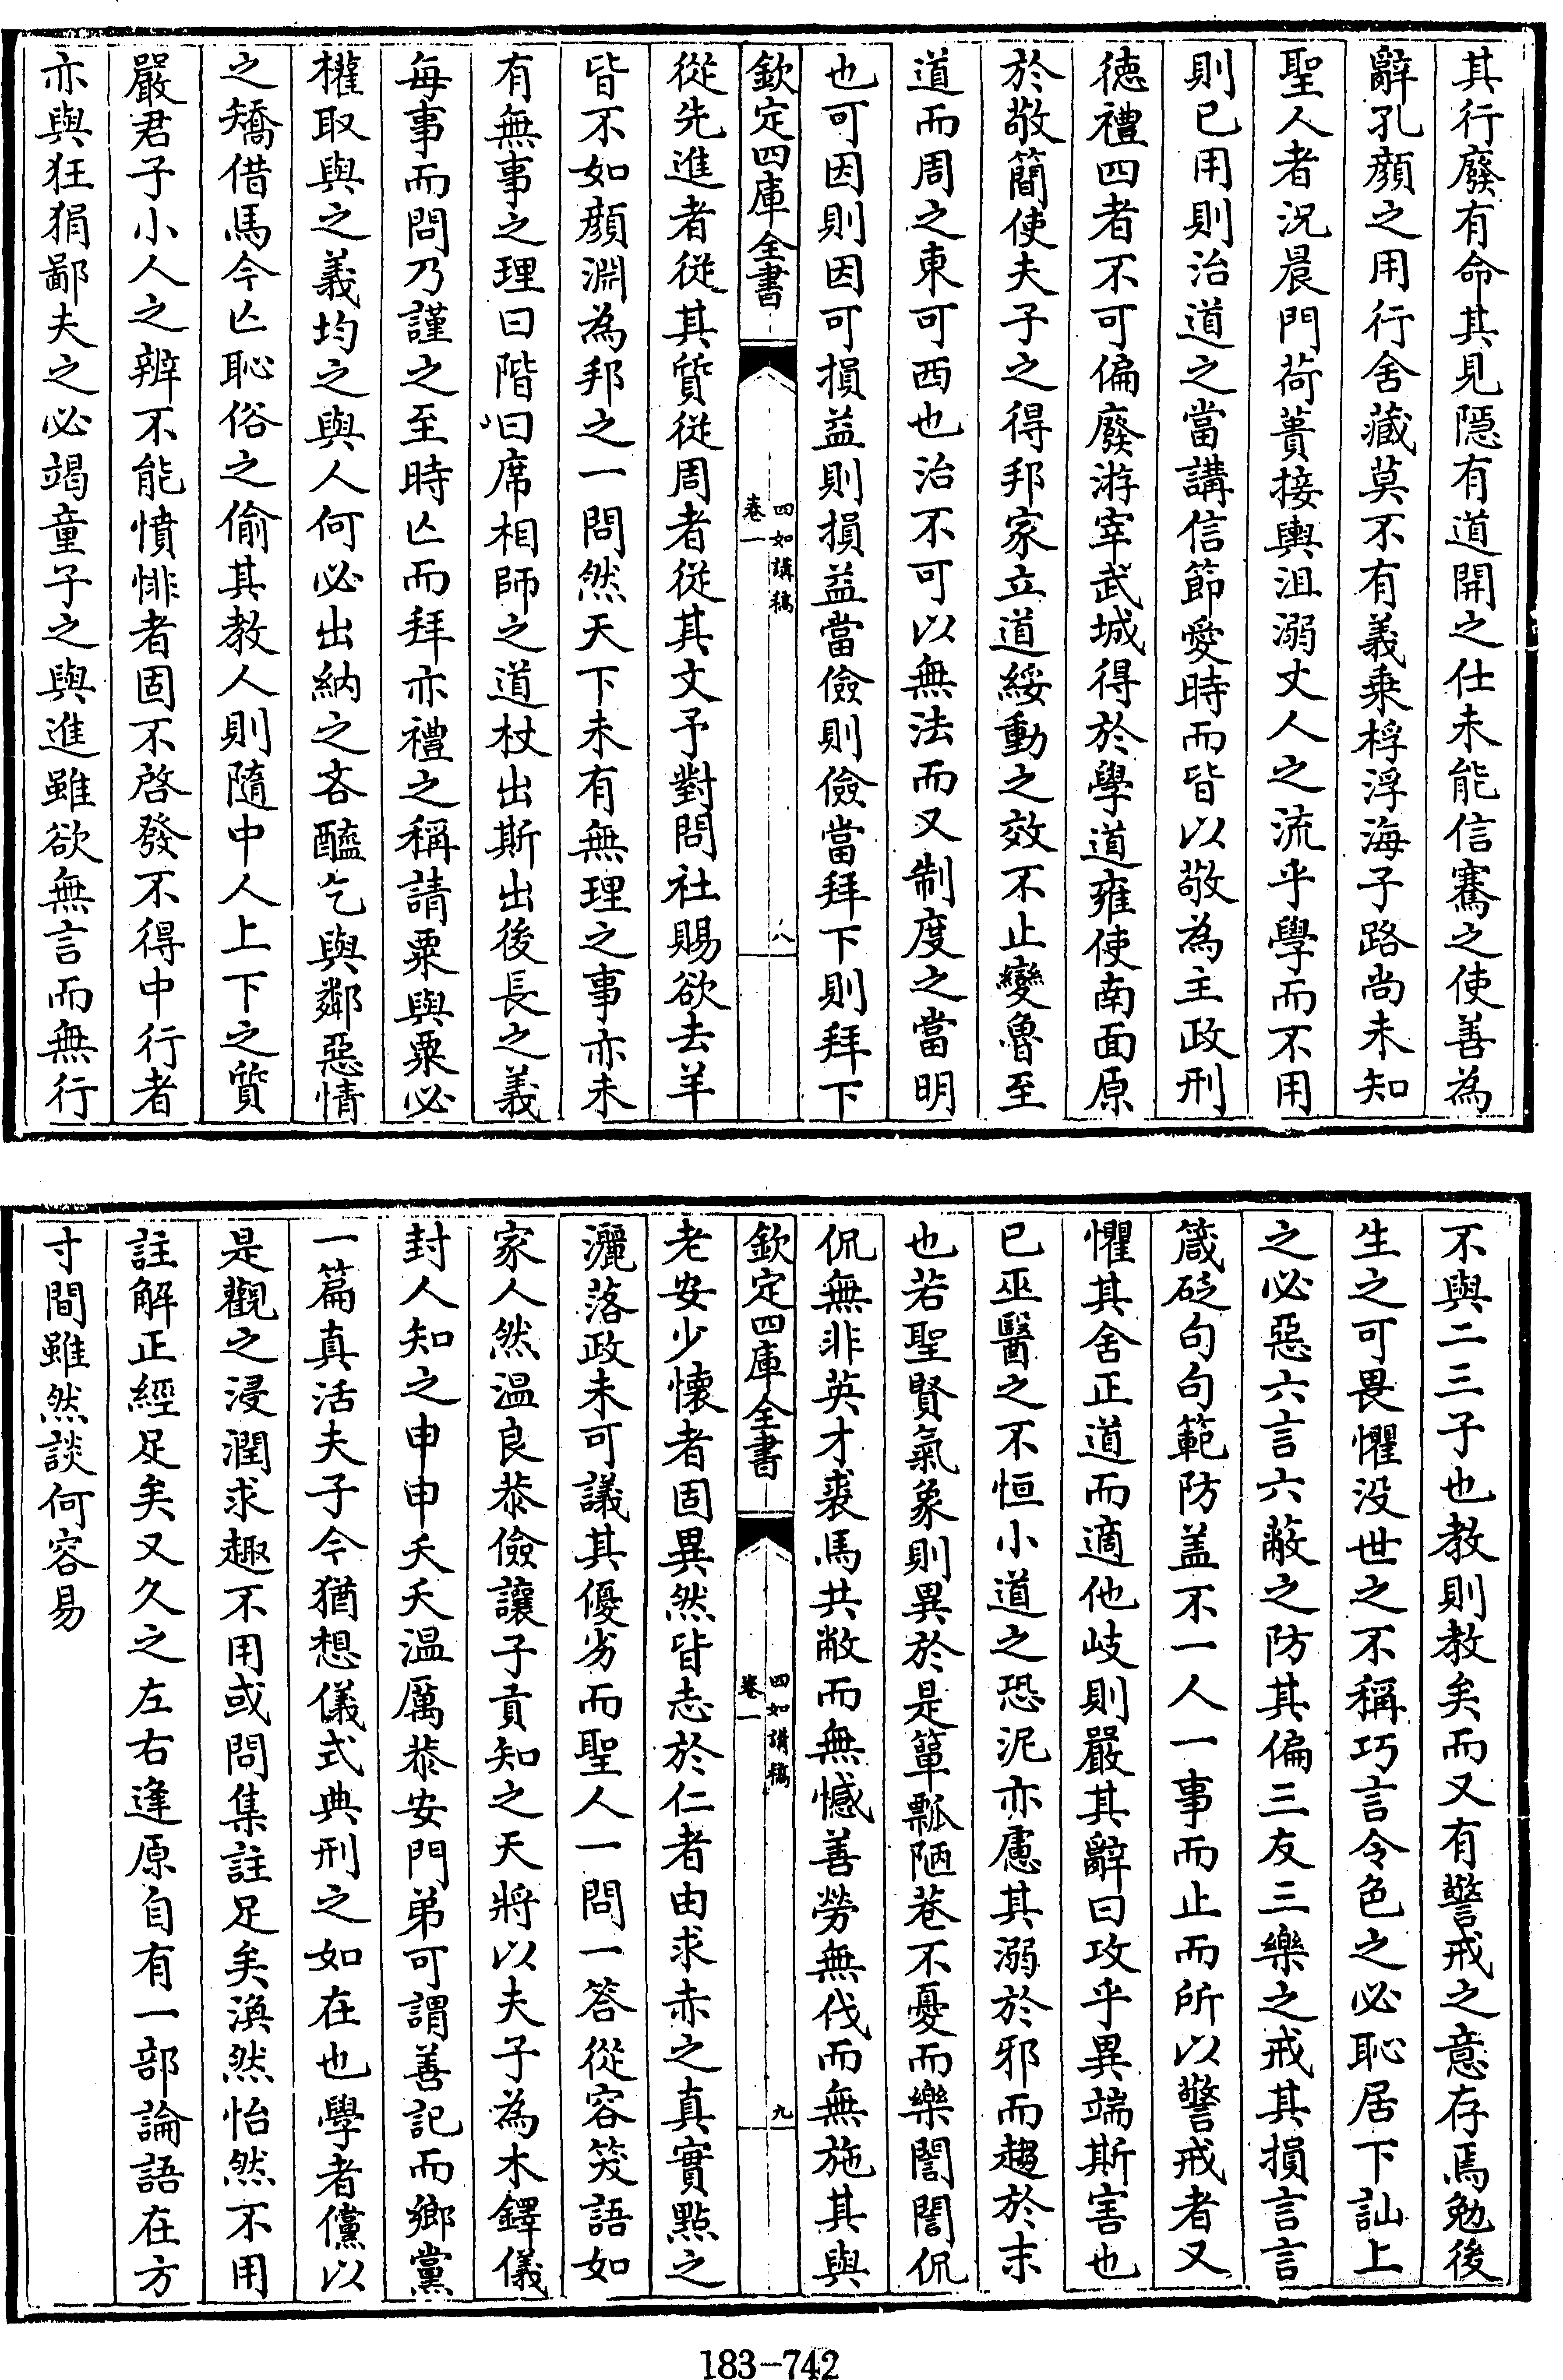 其行廢有命其見隱有道開之仕未能信騫之使善為
辭孔顔之用行舍藏莫不有義乗桴浮海子路尚未知
聖人者況晨門荷蕢接輿沮溺丈人之流乎學而不用
則已用則治道之當講信節愛時而皆以敬為主政刑
徳禮四者不可偏廢游宰武城得於學道雍使南面原
於敬簡使夫子之得邦家立道綏動之效不止變魯至
道而周之東可西也治不可以無法而又制度之當明
也可因則因可損益則損益當儉則儉當拜下則拜下
欽定四庫全書
四如講稿
卷一
八
從先進者從其質從周者從其文予對問社賜欲去羊
皆不如顔淵為邦之一問然天下未有無理之事亦未
有無事之理曰階曰席相師之道杖出斯出後長之義
每事而問乃謹之至時亾而拜亦禮之稱請粟與粟必
權取與之義均之與人何必出納之吝醯乞與鄰惡情
之矯借馬今亾恥俗之偷其教人則隨中人上下之質
嚴君子小人之辨不能憤悱者固不啓發不得中行者
亦與狂狷鄙夫之必竭童子之與進雖欲無言而無行
不與二三子也教則教矣而又有警戒之意存焉勉後
生之可畏懼没世之不稱巧言令色之必恥居下訕上
之必惡六言六蔽之防其偏三友三樂之戒其損言言
箴砭句句範防盖不一人一事而止而所以警戒者又
懼其舍正道而適他岐則嚴其辭曰攻乎異端斯害也
已巫醫之不恒小道之恐泥亦慮其溺於邪而趨於末
也若聖賢氣象則異於是簞瓢陋巷不憂而樂誾誾侃
侃無非英才裘馬共敝而無憾善勞無伐而無施其與
欽定四庫全書
四如講稿
卷一
九
老安少懷者固異然皆志於仁者由求赤之真實點之
灑落政未可議其優劣而聖人一問一答從容笑語如
家人然温良恭儉讓子貢知之天將以夫子為木鐸儀
封人知之申申夭夭温厲恭安門弟可謂善記而鄉黨
一篇真活夫子今猶想儀式典刑之如在也學者儻以
是觀之浸潤求趣不用或問集註足矣渙然怡然不用
註解正經足矣又久之左右逢原自有一部論語在方
寸間雖然談何容易
183-742